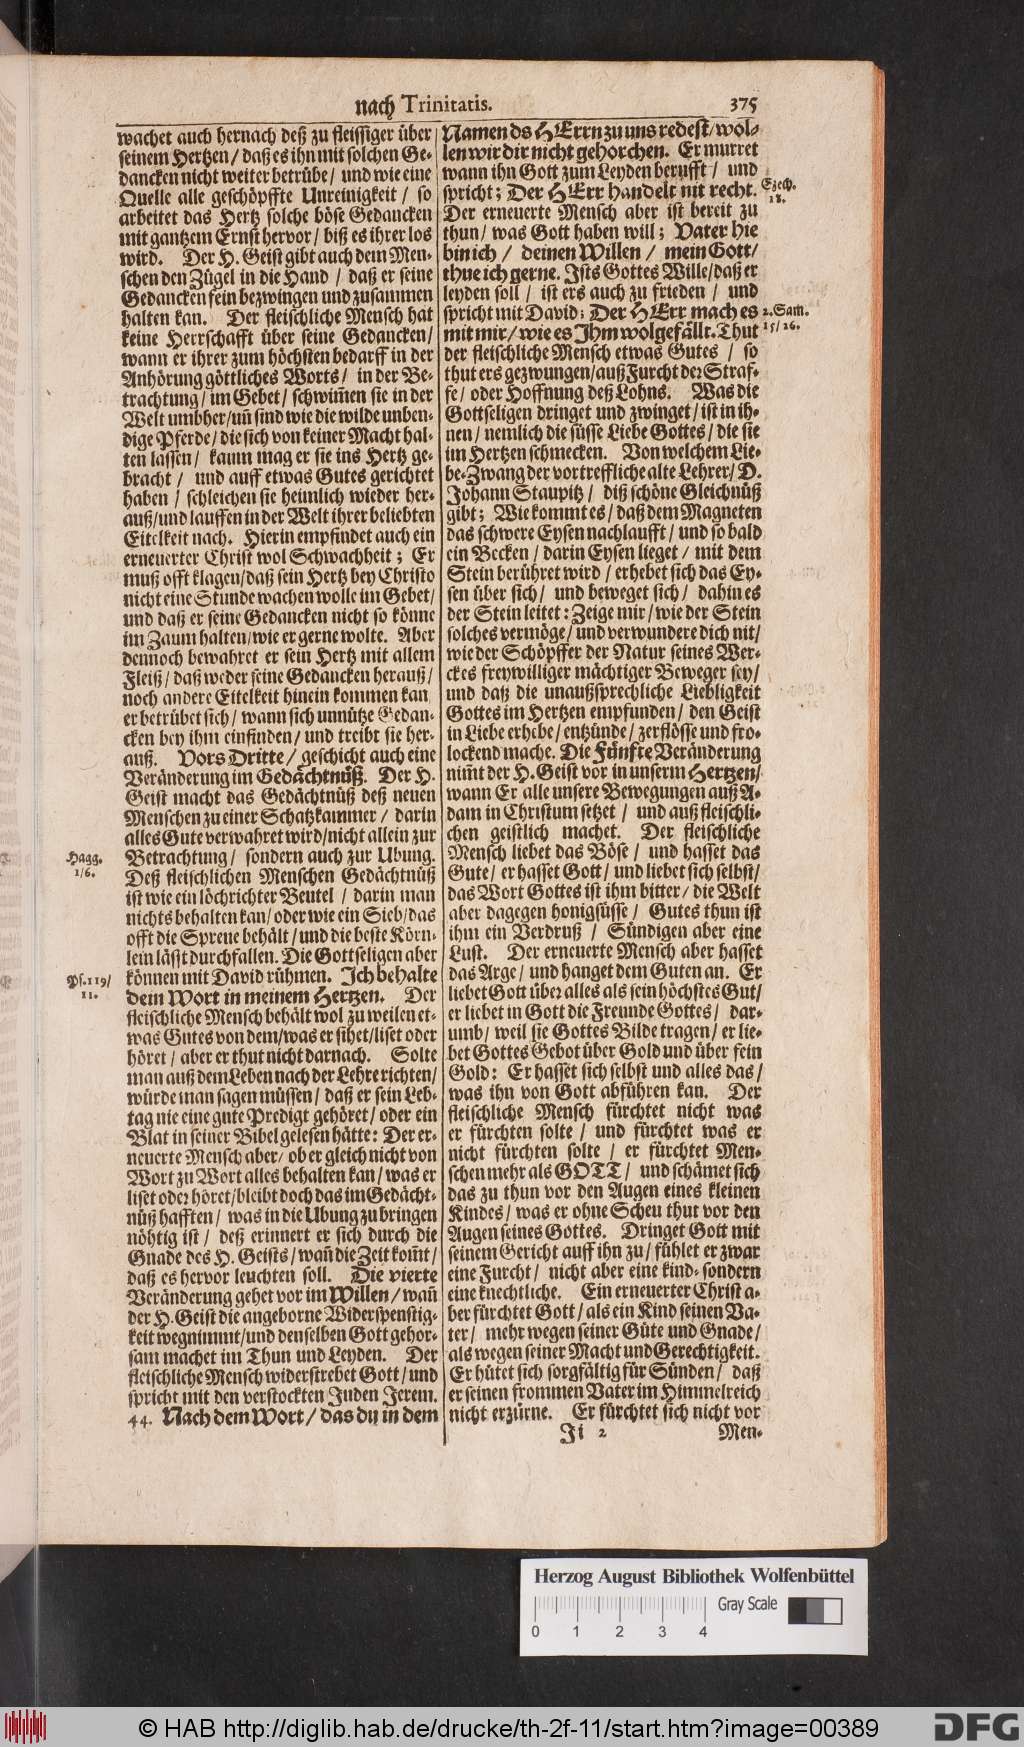 nach Trinitatis.
375
wachet auch hernach deß zu fleissiger über
seinem Hertzen / daß es ihn mit solchen Ge-
dancken nicht weiter betrübe / und wie eine
Quelle alle geschöpffte Unreinigkeit / so
arbeitet das Hertz solche böse Gedancken
mit gantzem Ernst hervor / biß es ihrer los
wird. Der H. Geist gibt auch dem Men-
schen den Zügel in die Hand / daß er seine
Gedancken fein bezwingen und zusammen
halten kan. Der fleischliche Mensch hat
keine Herrschafft über seine Gedancken /
wann er ihrer zum höchsten bedarff in der
Anhörung göttliches Worts / in der Be-
trachtung / im Gebet / schwim̃en sie in der
Welt umbher / uñ sind wie die wilde unben-
dige Pferde / die sich von keiner Macht hal-
ten lassen / kaum mag er sie ins Hertz ge-
bracht / und auff etwas Gutes gerichtet
haben / schleichen sie heimlich wieder her-
auß / und lauffen in der Welt ihrer beliebten
Eitelkeit nach. Hierin empfindet auch ein
erneuerter Christ wol Schwachheit ; Er
muß offt klagen / daß sein Hertz bey Christo
nicht eine Stunde wachen wolle im Gebet /
und daß er seine Gedancken nicht so könne
im Zaum halten / wie er gerne wolte. Aber
dennoch bewahret er sein Hertz mit allem
Fleiß / daß weder seine Gedancken herauß /
noch andere Eitelkeit hinein kommen kan
er betrübet sich / wann sich unnütze Gedan-
cken bey ihm einfinden / und treibt sie her-
auß. Vors Dritte / geschicht auch eine
Veränderung im Gedächtnüß. Der H.
Geist macht das Gedächtnüß deß neuen
Menschen zu einer Schatzkammer / darin
alles Gute verwahret wird / nicht allein zur
Betrachtung / sondern auch zur Ubung.
Deß fleischlichen Menschen Gedächtnüß
ist wie ein löchrichter Beutel / darin man
nichts behalten kan / oder wie ein Sieb / das
offt die Spreue behält / und die beste Körn-
lein läst durchfallen. Die Gottseligen aber
können mit David rühmen. Ich behalte
dein Wort in meinem Hertzen. Der
fleischliche Mensch behält wol zu weilen et-
was Gutes von dem / was er sihet / liset oder
höret / aber er thut nicht darnach. Solte
man auß dem Leben nach der Lehre richten /
würde man sagen müssen / daß er sein Leb-
tag nie eine gute Predigt gehöret / oder ein
Blat in seiner Bibel gelesen hätte : Der er-
neuerte Mensch aber / ob er gleich nicht von
Wort zu Wort alles behalten kan / was er
liset oder höret / bleibt doch das im Gedächt-
nüß hafften / was in die Ubung zu bringen
nöhtig ist / deß erinnert er sich durch die
Gnade des H. Geists / wañ die Zeit kom̃t /
daß es hervor leuchten soll. Die vierte
Veränderung gehet vor im Willen / wañ
der H. Geist die angeborne Widerspenstig-
keit wegnimmt / und denselben Gott gehor-
sam machet im Thun und Leyden. Der
fleischliche Mensch widerstrebet Gott / und
spricht mit den verstockten Juden Jerem.
44. Nach dem Wort / das du in dem
Hagg.
1/6.
Ps. 119/
11.
Namen ds HErrn zu uns redest / wol-
len wir dir nicht gehorchen. Er murret
wann ihn Gott zum Leyden berufft / und
spricht ; Der HErr handelt nit recht.
Der erneuerte Mensch aber ist bereit zu
thun / was Gott haben will ; Vater hie
bin ich / deinen Willen / mein Gott /
thue ich gerne. Ists Gottes Wille / daß er
leyden soll / ist ers auch zu frieden / und
spricht mit David : Der HErr mach es
mit mir / wie es Ihm wolgefällt. Thut
der fleischliche Mensch etwas Gutes / so
thut ers gezwungen / auß Furcht der Straf-
fe / oder Hoffnung deß Lohns. Was die
Gottseligen dringet und zwinget / ist in ih-
nen / nemlich die süsse Liebe Gottes / die sie
im Hertzen schmecken. Von welchem Lie-
be-Zwang der vortreffliche alte Lehrer / D.
Johann Staupitz / diß schöne Gleichnüß
gibt ; Wie kommt es / daß dem Magneten
das schwere Eysen nachlaufft / und so bald
ein Becken / darin Eysen lieget / mit dem
Stein berühret wird / erhebet sich das Ey-
sen über sich / und beweget sich / dahin es
der Stein leitet : Zeige mir / wie der Stein
solches vermöge / und verwundere dich nit /
wie der Schöpffer der Natur seines Wer-
ckes freywilliger mächtiger Beweger sey /
und daß die unaußsprechliche Liebligkeit
Gottes im Hertzen empfunden / den Geist
in Liebe erhebe / entzünde / zerflösse und fro-
lockend mache. Die Fünfte Veränderung
nim̃t der H. Geist vor in unserm Hertzen /
wann Er alle unsere Bewegungen auß A-
dam in Christum setzet / und auß fleischli-
chen geistlich machet. Der fleischliche
Mensch liebet das Böse / und hasset das
Gute / er hasset Gott / und liebet sich selbst /
das Wort Gottes ist ihm bitter / die Welt
aber dagegen honigsüsse / Gutes thun ist
ihm ein Verdruß / Sündigen aber eine
Lust. Der erneuerte Mensch aber hasset
das Arge / und hanget dem Guten an. Er
liebet Gott über alles als sein höchstes Gut /
er liebet in Gott die Freunde Gottes / dar-
umb / weil sie Gottes Bilde tragen / er lie-
bet Gottes Gebot über Gold und über fein
Gold : Er hasset sich selbst und alles das /
was ihn von Gott abführen kan. Der
fleischliche Mensch fürchtet nicht was
er fürchten solte / und fürchtet was er
nicht fürchten solte / er fürchtet Men-
schen mehr als GOTT / und schämet sich
das zu thun vor den Augen eines kleinen
Kindes / was er ohne Scheu thut vor den
Augen seines Gottes. Dringet Gott mit
seinem Gericht auff ihn zu / fühlet er zwar
eine Furcht / nicht aber eine kind- sondern
eine knechtliche. Ein erneuerter Christ a-
ber fürchtet Gott / als ein Kind seinen Va-
ter / mehr wegen seiner Güte und Gnade /
als wegen seiner Macht und Gerechtigkeit.
Er hütet sich sorgfältig für Sünden / daß
er seinen frommen Vater im Himmelreich
nicht erzürne. Er fürchtet sich nicht vor
Ezech.
18.
2. Sam.
15/26.
Ji 2
Men-
Herzog August Bibliothek Wolfenbüttel
Gray Scale
0 1 2 3 4
© HAB http://diglib.hab.de/drucke/th-2f-11/start.htm?image=00389
DFG